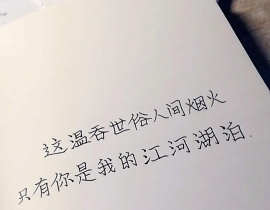 这温吞世俗人间烟火
只有你是我的江河湖泊.